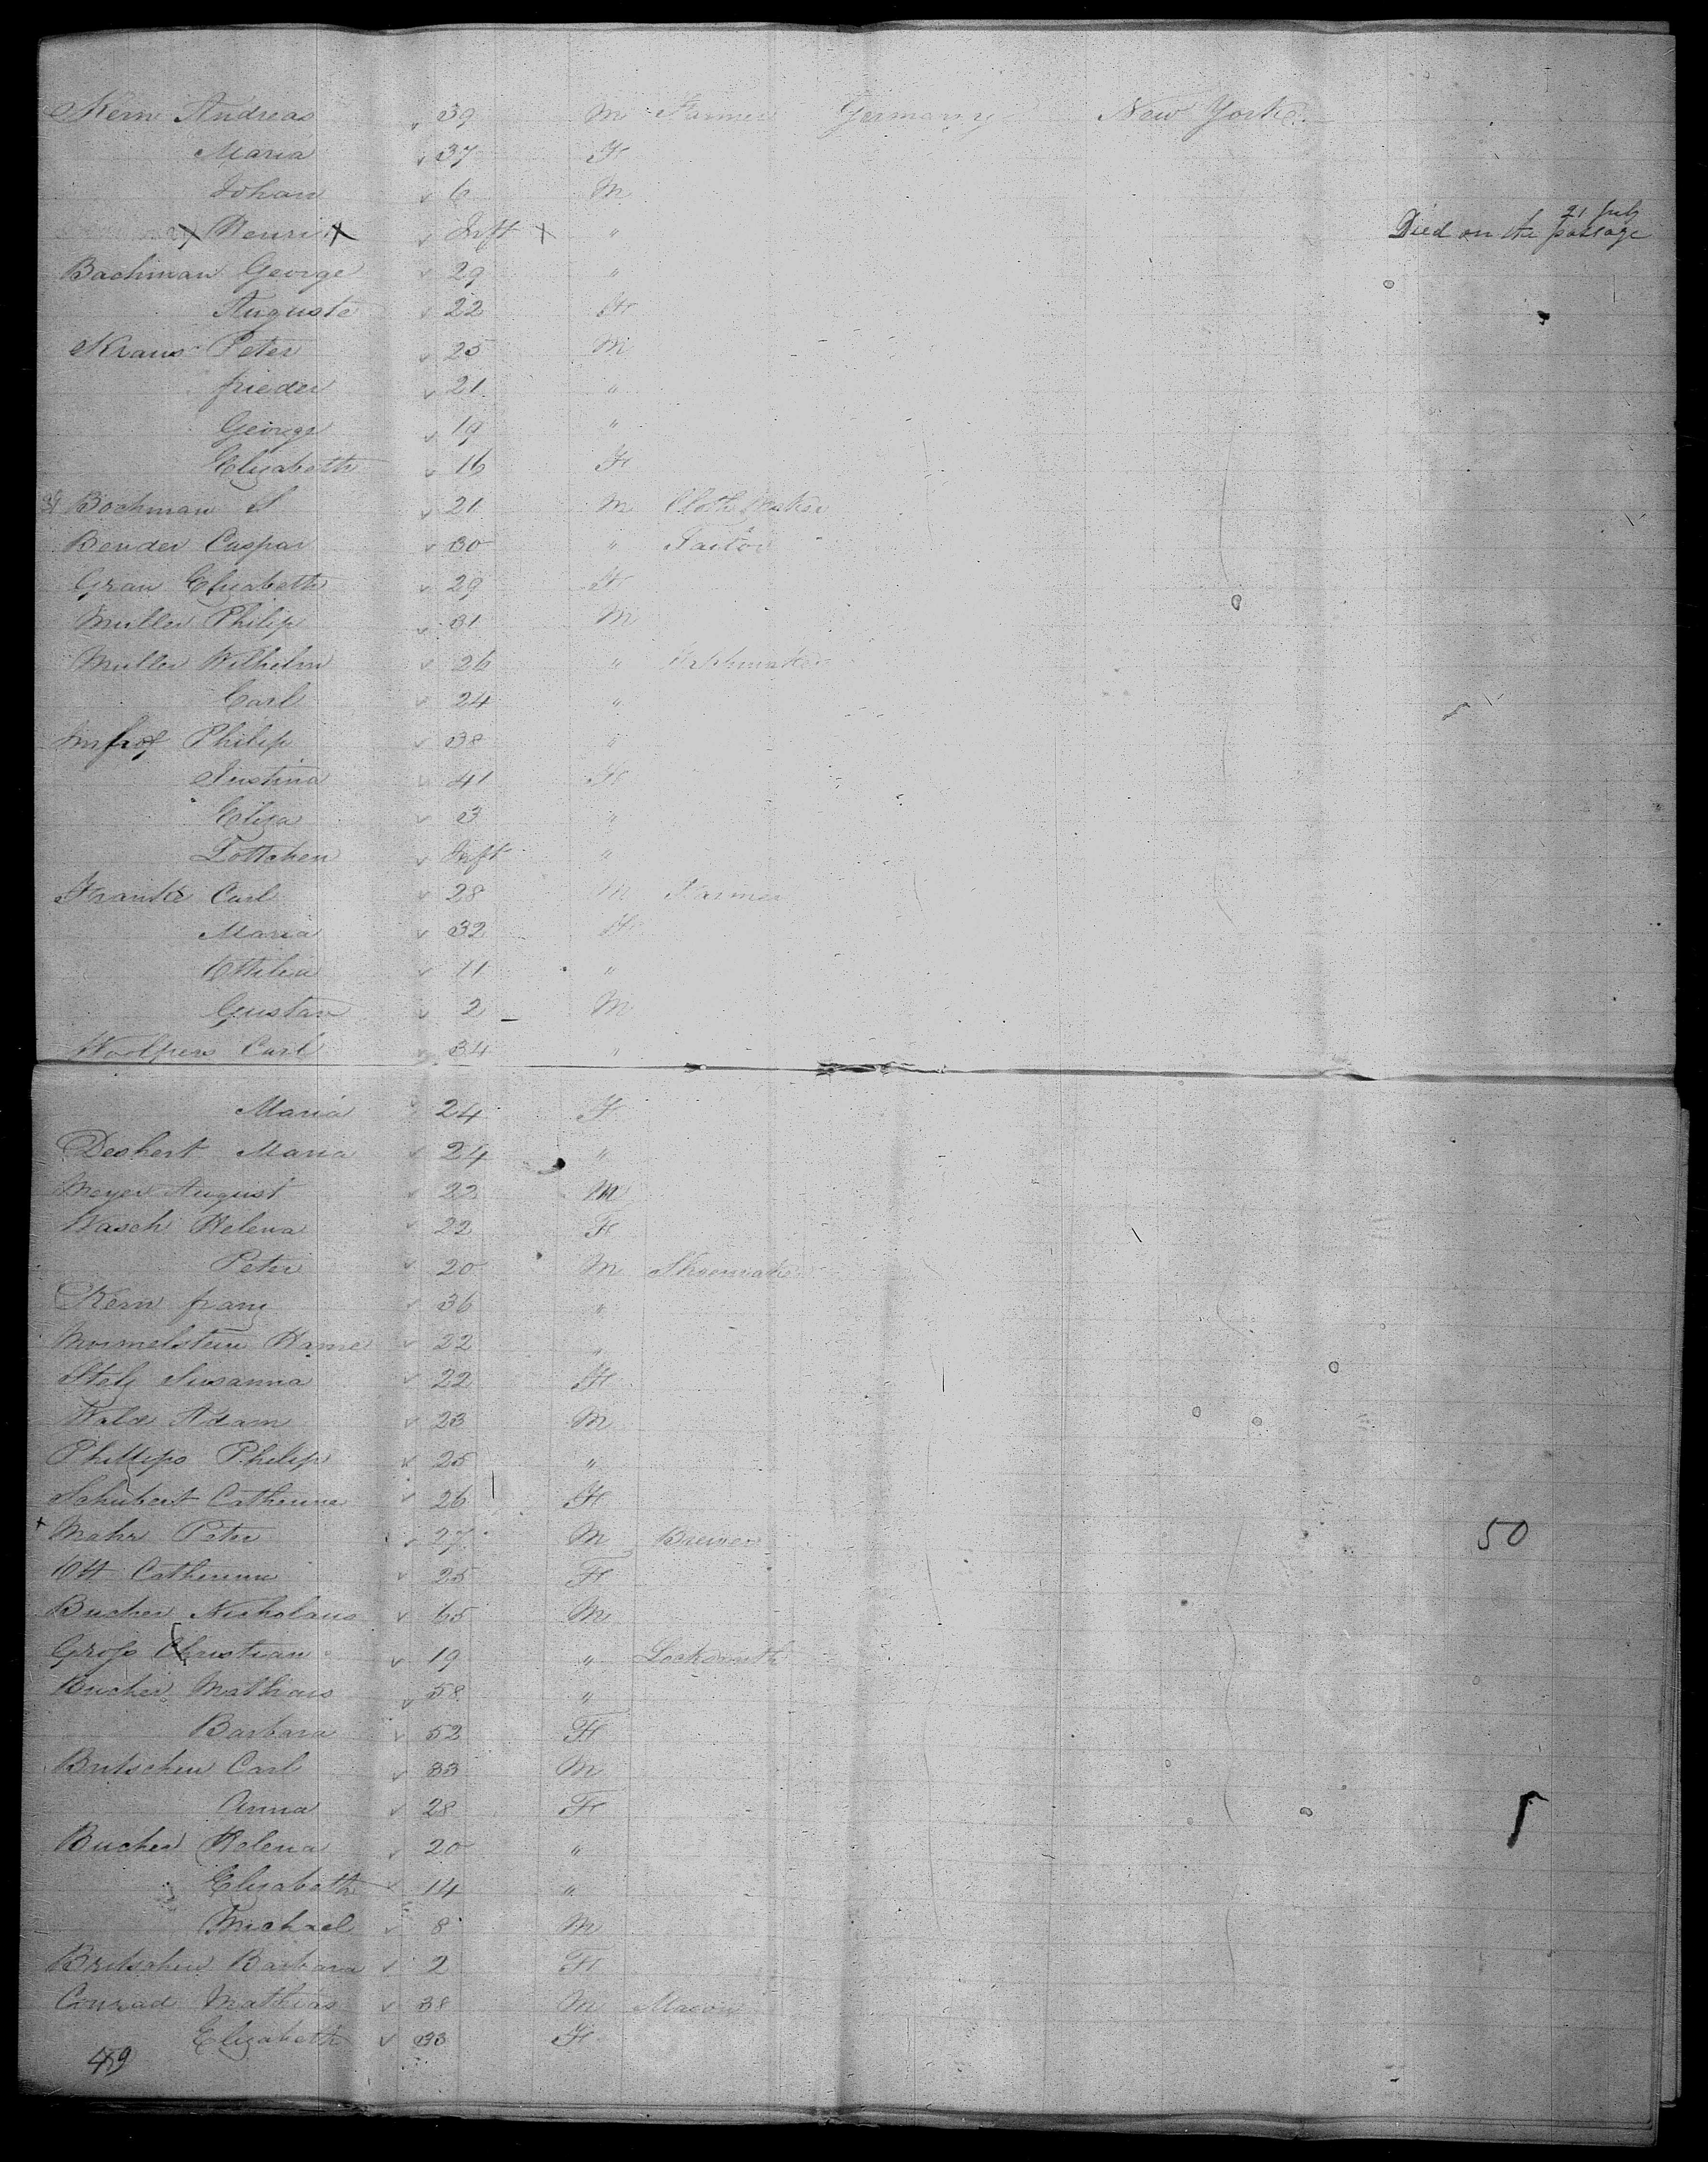 Kern Andreas " 39 M Farmer Germany New York.
Maria v 37 F
Johan v 6 M
x Henri x v Inft x " Died on the passage 21 July
Bachman George v 29 "
Auguste v 22 F
Kraus Peter v 25 M
frieder v 21 "
George v 19 "
Elizabeth v 16 F
Bachman S v 21 M Cloth Maker
Bender Caspar v 30 " Tailor
Grau Elizabeth v 29 F
Muller Philip v 31 M
Muller Wilhelm v 26 "
Carl v 24 "
Imhof Philip v 38 "
Justina v 41 F
Eliza v 3 "
Lottchen v Inft "
Franke Carl v 28 M Farmer
Maria v 32 F
Ottilia v 11 "
Gustav v 2 M
Woolpers Carl v 34 "
Maria v 24 F
Deshert Maria v 24 "
Meyer August v 22 M
Wasch Helena v 22 F
Peter v 20 M Shoemaker
Kern franz v 36 "
22 "
Stelz Susanna v 22 F
Adam v 23 M
Phillips Philip v 25 "
Schubert Catherine v 26 F
x Mahr Peter v 27 M Brewer 50
Ott Catherine v 25 F
Bucher Nicholaus v 65 M
Groß Christian v 19 " Locksmith
Bucher Mathias v 58 "
Barbara v 52 F
Britschen Carl v 33 M
Anna v 28 F
Bucher Helena v 20 "
Elizabeth v 14 "
Michael v 8 M
Britschen Barbara v 2 F
Conrad Mathias v 38 M Mason
Elizabeth v 33 F
49